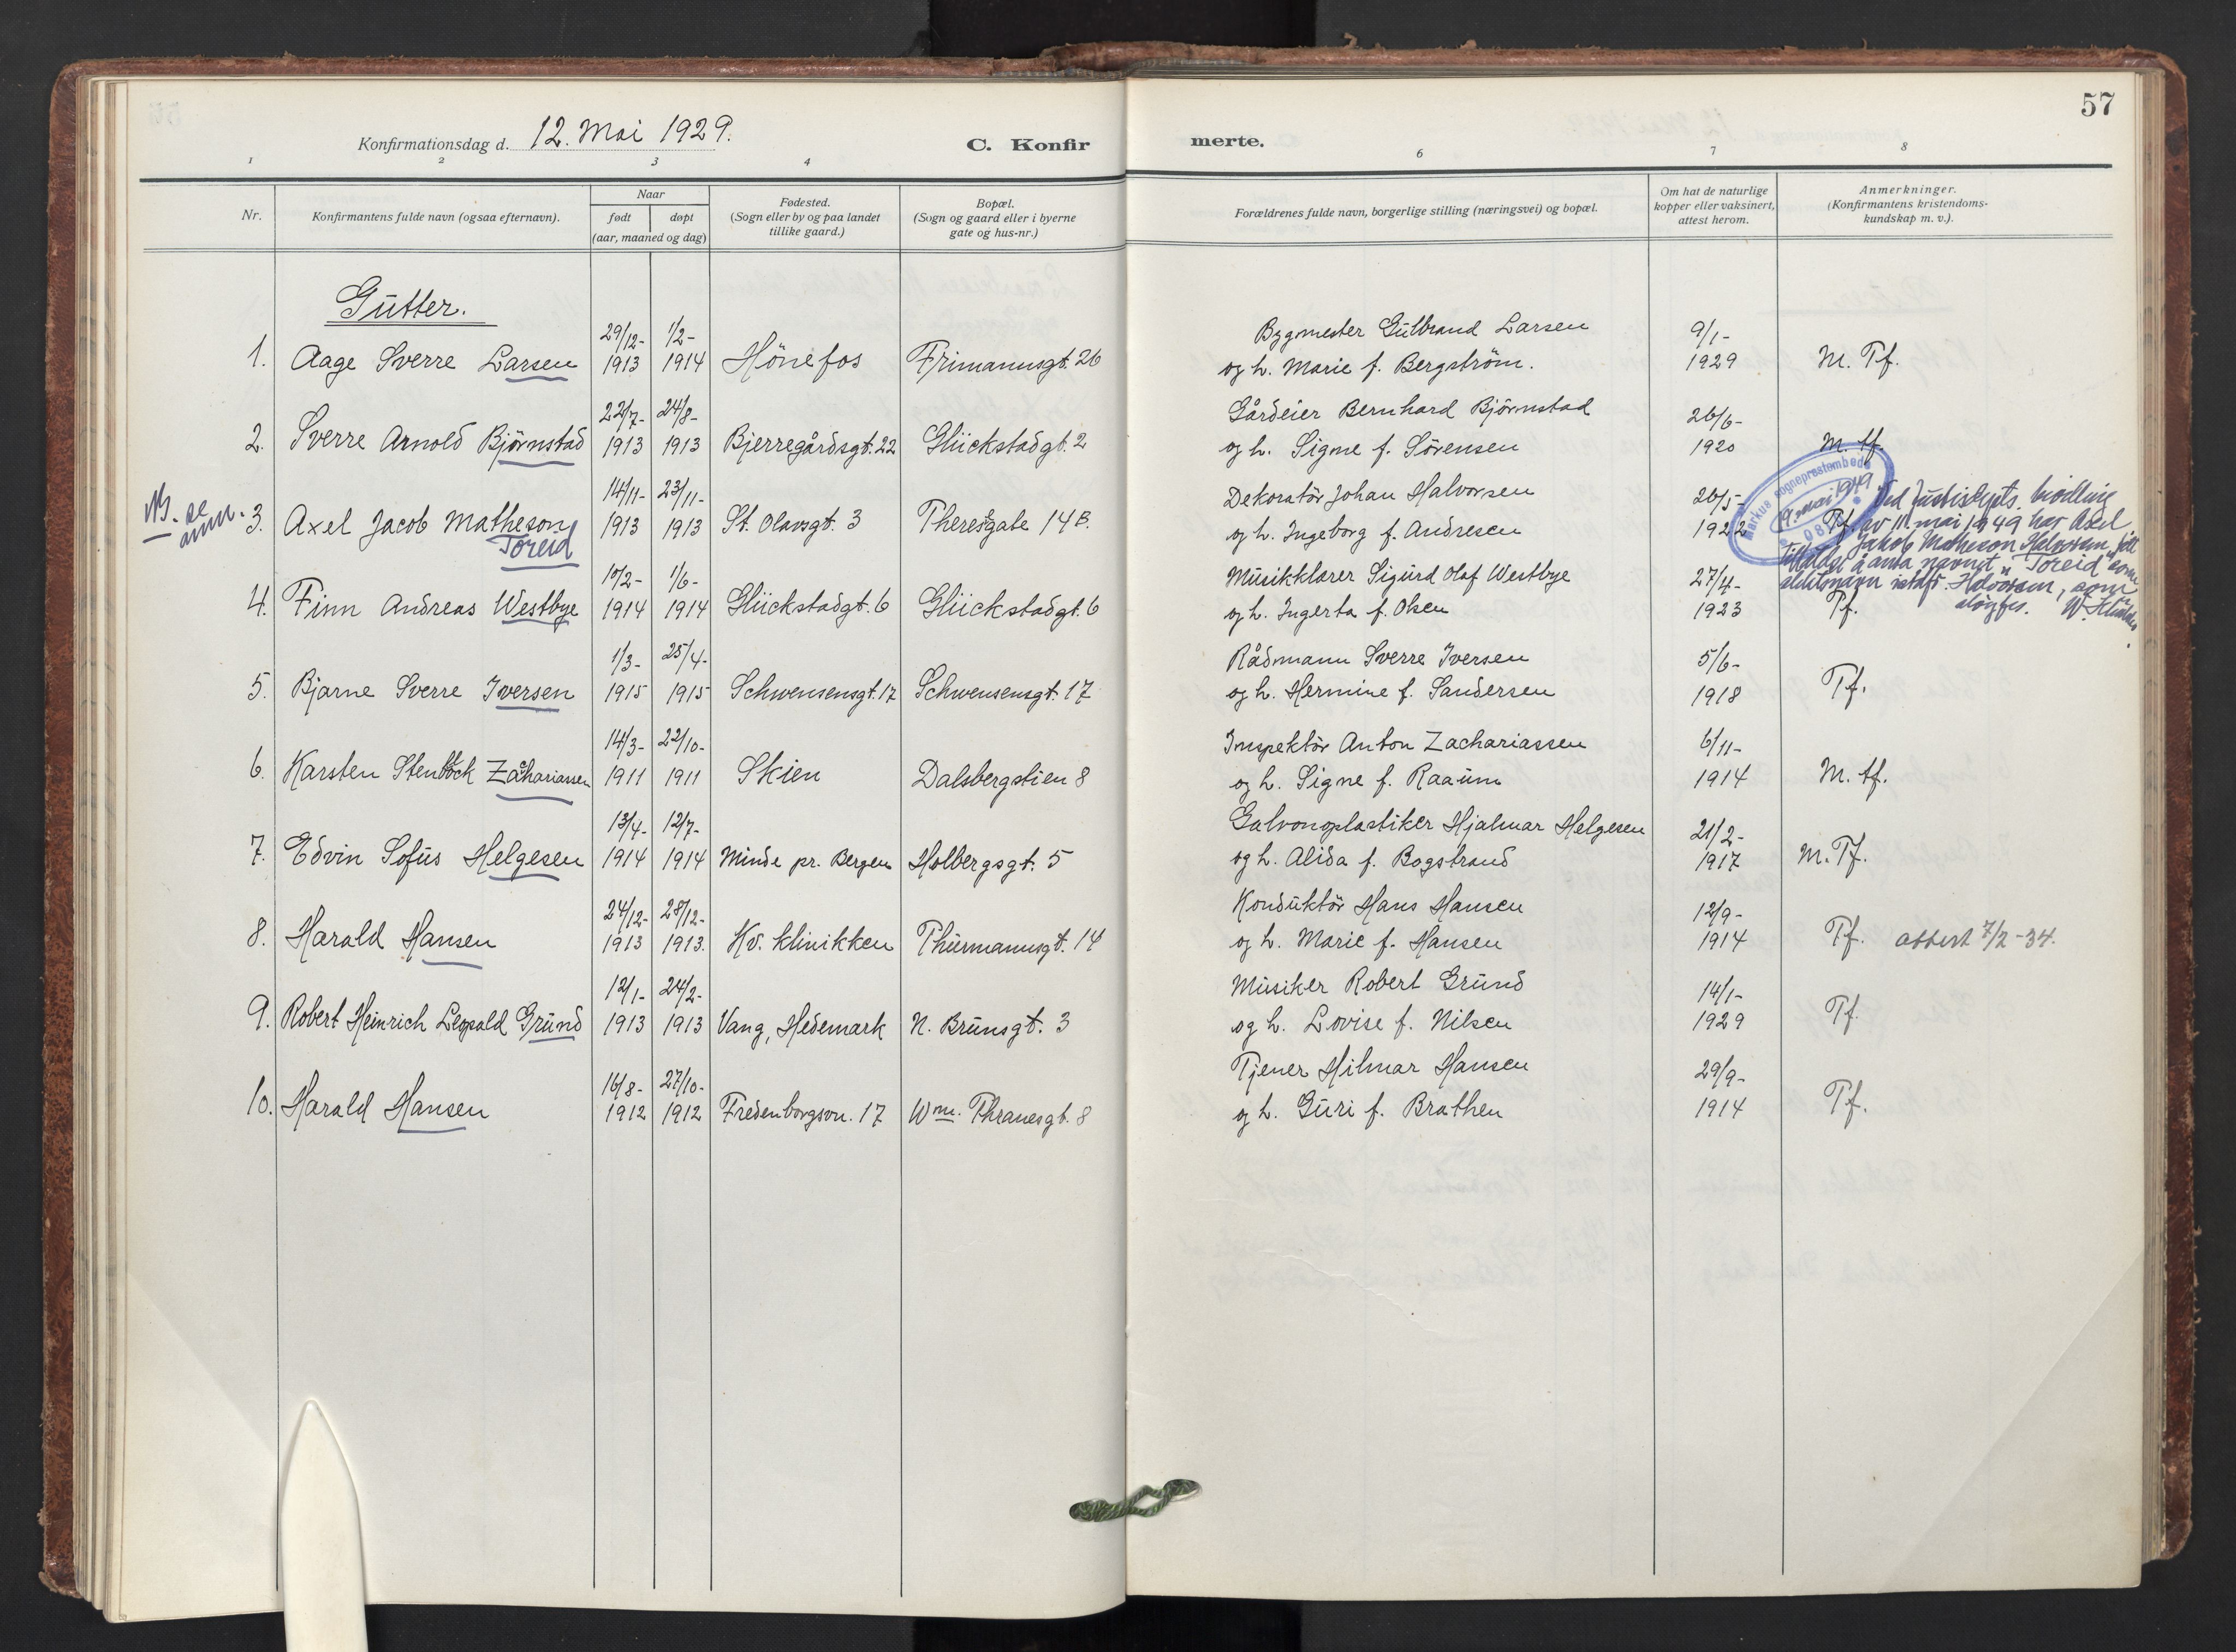 57
Konfirmationsdag d. 12. Mai 1929.
C. Konfirmerte.
1 2 3 4 6 7 8
Nr.
Konfirmantens fulde navn (ogsaa efternavn).
Naar
født
døpt
(aar, maaned og dag)
Fødested.
(Sogn eller by og paa landet
tillike gaard.)
Bopæl.
(Sogn og gaard eller i byerne
gate og hus-nr.)
Forældrenes fulde navn, borgerlige stilling (næringsvei) og bopæl.
Om hat de naturlige
kopper eller vaksinert,
attest herom.
Anmerkninger.
(Konfirmantens kristendoms-
kundskap m. v.).
Gutter.
29/12- 1/2- Bygmester Gulbrand Larsen 9/1-
1. Aage Sverre Larsen 1913 1914 Hönefos Frimannsgt. 26 og h. Marie f. Bergström. 1929 M. Tf.
22/7- 24/8- Gårdeier Bernhard Björnstad 26/6-
2. Sverre Arnold Björnstad 1913 1913 Bjerregårdsgt. 22 Glückstadgt. 2 og h. Signe f. Sörensen 1920 M. tf.
14/11- 23/11- Dekoratör Johan Halvorsen 26/5-
NB. se anm. 3. Axel Jacob Matheson 1913 1913 St. Olavsgt. 3 Theresgate 14 B. og h. Ingeborg f. Andresen 1922 Tf.
Toreid
Markus sogneprestembede
19. mai 1949
OSLO
Ved Justisdepts. bevilling
av 11. mai 1949 har Axel
Jakob Matheson Halvorsen fått
tillatelse å anta navnet "Toreid" som
slektsnavn istdf. Halvorsen, som
sløyfes.
10/2- 1/6- Musikklærer Sigurd Olaf Westbye 27/4-
4. Finn Andreas Westbye 1914 1914 Glückstadgt. 6 Glückstadgt. 6 og h. Ingerta f. Olsen 1923 Tf.
1/3- 25/4- Rådmann Sverre Iversen 5/6-
5. Bjarne Sverre Iversen 1915 1915 Schwensensgt. 17 Schwensensgt. 17 og h. Hermine f. Sandersen 1918 Tf.
14/3- 22/10- Inspektör Anton Zachariassen 6/11-
6. Karsten Stenbock Zachariassen 1911 1911 Skien Dalsbergstien 8 og h. Signe f. Raaum 1914 M. tf.
13/4- 12/7- Galvonoplastiker Hjalmar Helgesen 21/2-
7. Edvin Sofus Helgesen 1914 1914 Minde pr. Bergen Holbergsgt. 5 og h. Alida f. Bogstrand 1917 M. Tf.
24/12- 28/12- Konduktör Hans Hansen 12/9-
8. Harald Hansen 1913 1913. Kv. klinikken Thurmannsgt. 14 og h. Marie f. Hansen 1914 Tf. attest 7/2-34.
12/1- 24/2- Musiker Robert Grund 14/1-
9. Robert Heinrich Leopold Grund 1913 1913 Vang, Hedemark N. Brunsgt. 3 og h. Lovise f. Nilsen 1929 Tf
16/8- 27/10- Tjener Hilmar Hansen 29/9-
10. Harald Hansen 1912 1912 Fredenborgsvn. 17 Wm. Thranesgt. 8 og h. Guri f. Brathen 1914 Tf.